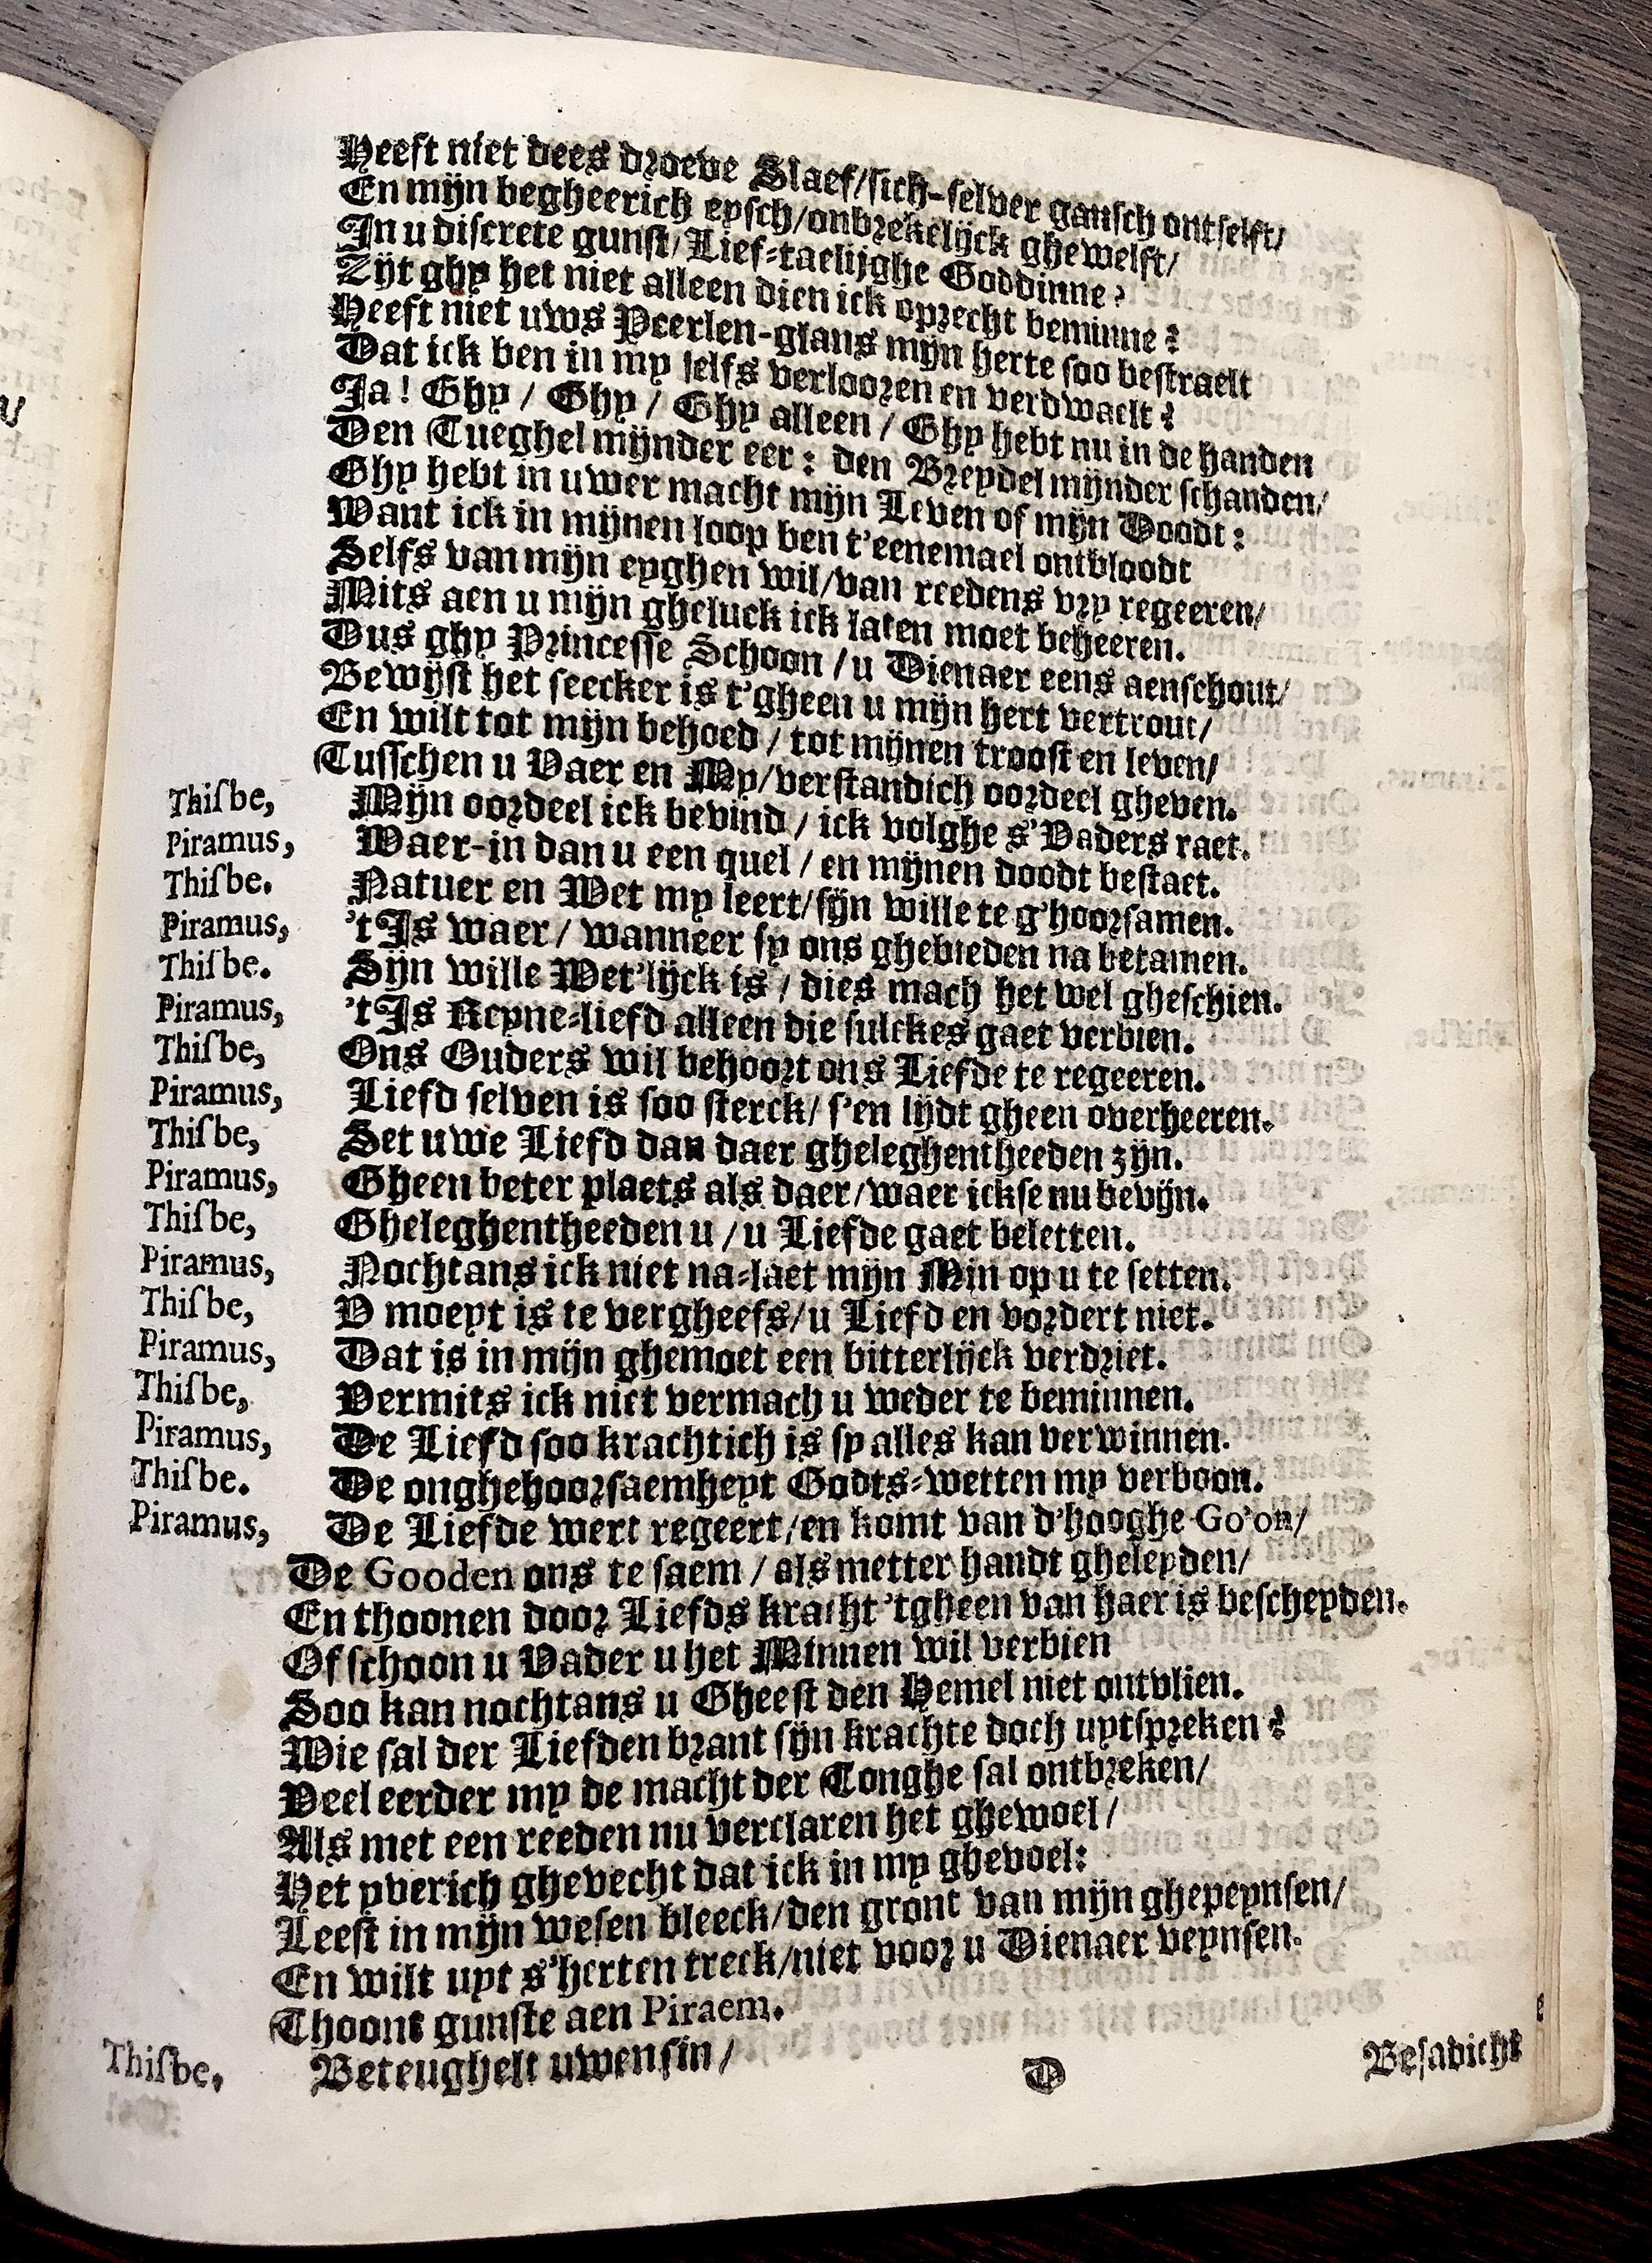 Heeft niet dees droeve Slaef/sich-selver gansch ontselft/
En mijn begheerich eysch/onbrekelijck ghewelft/
In u discrete gunst/Lief-taelijghe Goddinne?
Zijt ghy het niet alleen dien ick oprecht beminne?
Heeft niet uws Peerlen-glans mijn herte soo bestraelt
Dat ick ben in my selfs verlooren en verdwaelt?
Ja! Ghy / Ghy / Ghy alleen / Ghy hebt nu in de handen
Den Tueghel mijnder eer: den Breydel mijnder schanden/
Ghy hebt in uwer macht mijn Leven of mijn Doodt:
Want ick in mijnen loop ben t'eenemael ontbloodt
Selfs van mijn eyghen wil/van reedens vry regeeren/
Mits aen u mijn gheluck ick laten moet beheeren.
Dus ghy Princesse Schoon / u Dienaer eens aenschout/
Bewijst het seecker is t'gheen u mijn hert vertrout/
En wilt tot mijn behoed / tot mijnen troost en leven/
Tusschen u Vaer en My/verstandich oordeel gheven.
Thisbe, Mijn oordeel ick bevind / ick volghe s'Vaders raet.
Piramus, Waer-in dan u een quel / en mijnen doodt bestaet.
Thisbe. Natuer en Wet my leert/sijn wille te g'hoorsamen.
Piramus, 't Is waer/ wanneer sy ons ghebieden na betamen.
Thisbe. Sijn wille Wet'lijck is / dies mach het wel gheschien.
Piramus, 't Is Reyne-liefd alleen die sulckes gaet verbien.
Thisbe, Ons Ouders wil behoort ons Liefde te regeeren.
Piramus, Liefd selven is soo sterck/ s'en lijdt gheen overheeren.
Thisbe, Set uwe Liefd dan daer gheleghentheeden zijn.
Piramus, Gheen beter plaets als daer/waer ickse nu bevijn.
Thisbe, Gheleghentheeden u / u Liefde gaet beletten.
Piramus, Nochtans ick niet na-laet mijn Min op u te setten.
Thisbe, V moeyt is te vergheefs/u Liefd en vordert niet.
Piramus, Dat is in mijn ghemoet een bitterlijck verdriet.
Thisbe, Vermits ick niet vermach u weder te beminnen.
Piramus, De Liefd soo krachtich is sy alles kan verwinnen.
Thisbe. De onghehoorsaemheyt Godts-wetten my verboon.
Piramus, De Liefde wert regeert/en komt van d'hooghe Go'on/
De Gooden ons te saem / als metter handt gheleyden/
En thoonen door Liefds kracht 'tgheen van haer is bescheyden.
Of schoon u Vader u het Minnen wil verbien
Soo kan nochtans u Gheest den Hemel niet ontvlien.
Wie sal der Liefden brant sijn krachte doch uytspreken?
Veel eerder my de macht der Tonghe sal ontbreken/
Als met een reeden nu verclaren het ghewoel/
Het yverich ghevecht dat ick in my ghevoel:
Leest in mijn wesen bleeck/den gront van mijn ghepeynsen/
En wilt uyt s'herten treck/niet voor u Dienaer veynsen.
Thoont gunste aen Piraem.
Thisbe, Beteughelt uwen sin/
D Besadicht